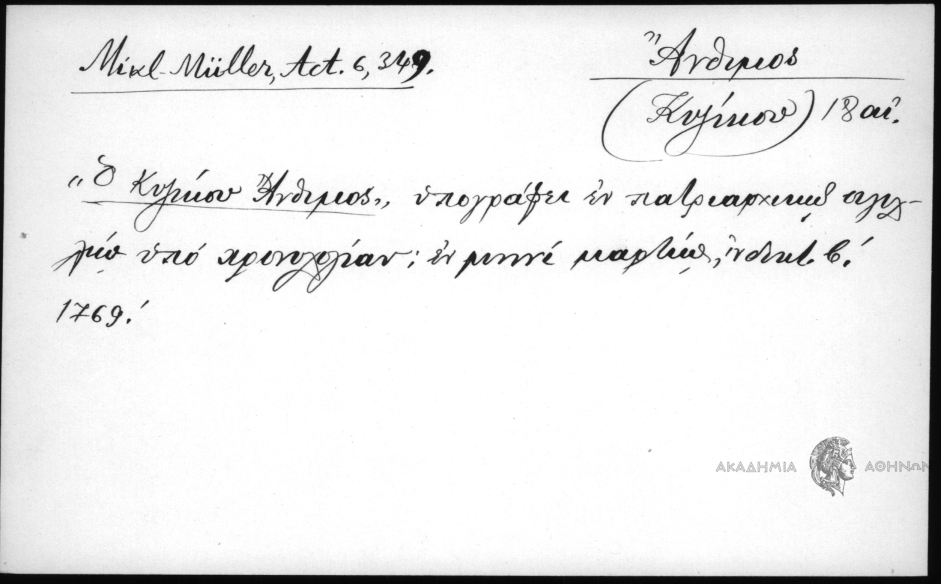 Mikl-Müller, Act. 6, 349.
Ἄνθιμος
(Κυζίκου) 18 αἰ.
„Ὁ Κυζίκου Ἄνθιμος„ ὑπογράφει ἐν πατριαρχικῷ σιγιλ-
λίῳ ὑπό χρονολογίαν; ἐν μηνί μαρτίῳ, ἰνδικτ. β΄.
1769.΄
ΑΚΑΔΗΜΙΑ ΑΘΗΝΩΝ